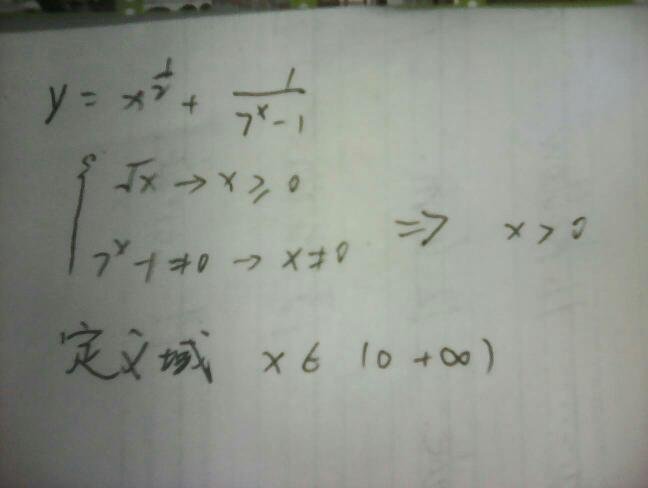 y = x^{1/2} + \frac{1}{7^x - 1}
{ √x → x ≥ 0
7^x - 1 ≠ 0 → x ≠ 0 ⇒ x > 0
定义域 x ∈ (0 +∞)